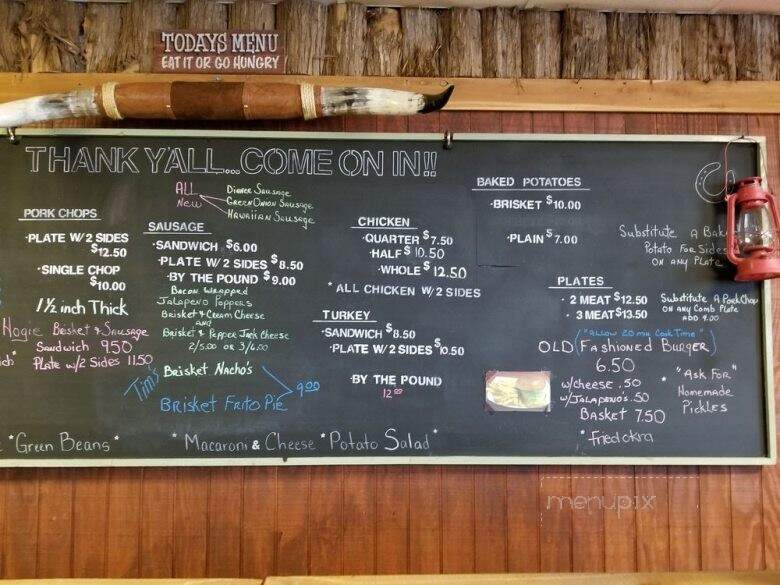 TODAYS MENU
EAT IT OR GO HUNGRY
THANK Y'ALL...COME ON IN!!
PORK CHOPS
·PLATE W/ 2 SIDES
$12.50
·SINGLE CHOP
$10.00
1 1/2 inch Thick
Hogie Brisket & Sausage
Sandwich 9.50
Plate w/2 Sides 11.50
ALL
New
Dinner Sausage
Green Onion Sausage
Hawaiian Sausage
SAUSAGE
·SANDWICH $6.00
·PLATE W/ 2 SIDES $8.50
·BY THE POUND $9.00
Bacon Wrapped
Jalapeno Poppers
Brisket & Cream Cheese
AND
Brisket & Pepper Jack Cheese
2/5.00 or 3/6.00
Tim's
Brisket Nacho's
Brisket Frito Pie
9.00
CHICKEN
·QUARTER $7.50
·HALF $10.50
·WHOLE $12.50
*ALL CHICKEN W/ 2 SIDES
TURKEY
·SANDWICH $8.50
·PLATE W/ 2 SIDES $10.50
·BY THE POUND
12.00
BAKED POTATOES
·BRISKET $10.00
·PLAIN $7.00
Substitute A
Potato For Sides
ON ANY Plate
PLATES
· 2 MEAT $12.50
· 3 MEAT $13.50
Substitute A Pork Chop
ON ANY Comb Plate
ADD 4.00
"Allow 20 min Cook Time"
OLD Fashioned Burger
6.50
w/cheese .50
w/Jalapeno's .50
Basket 7.50
* "Ask For"
Homemade
Pickles
*Green Beans* *Macaroni & Cheese *Potato Salad* *Fried okra
menupix